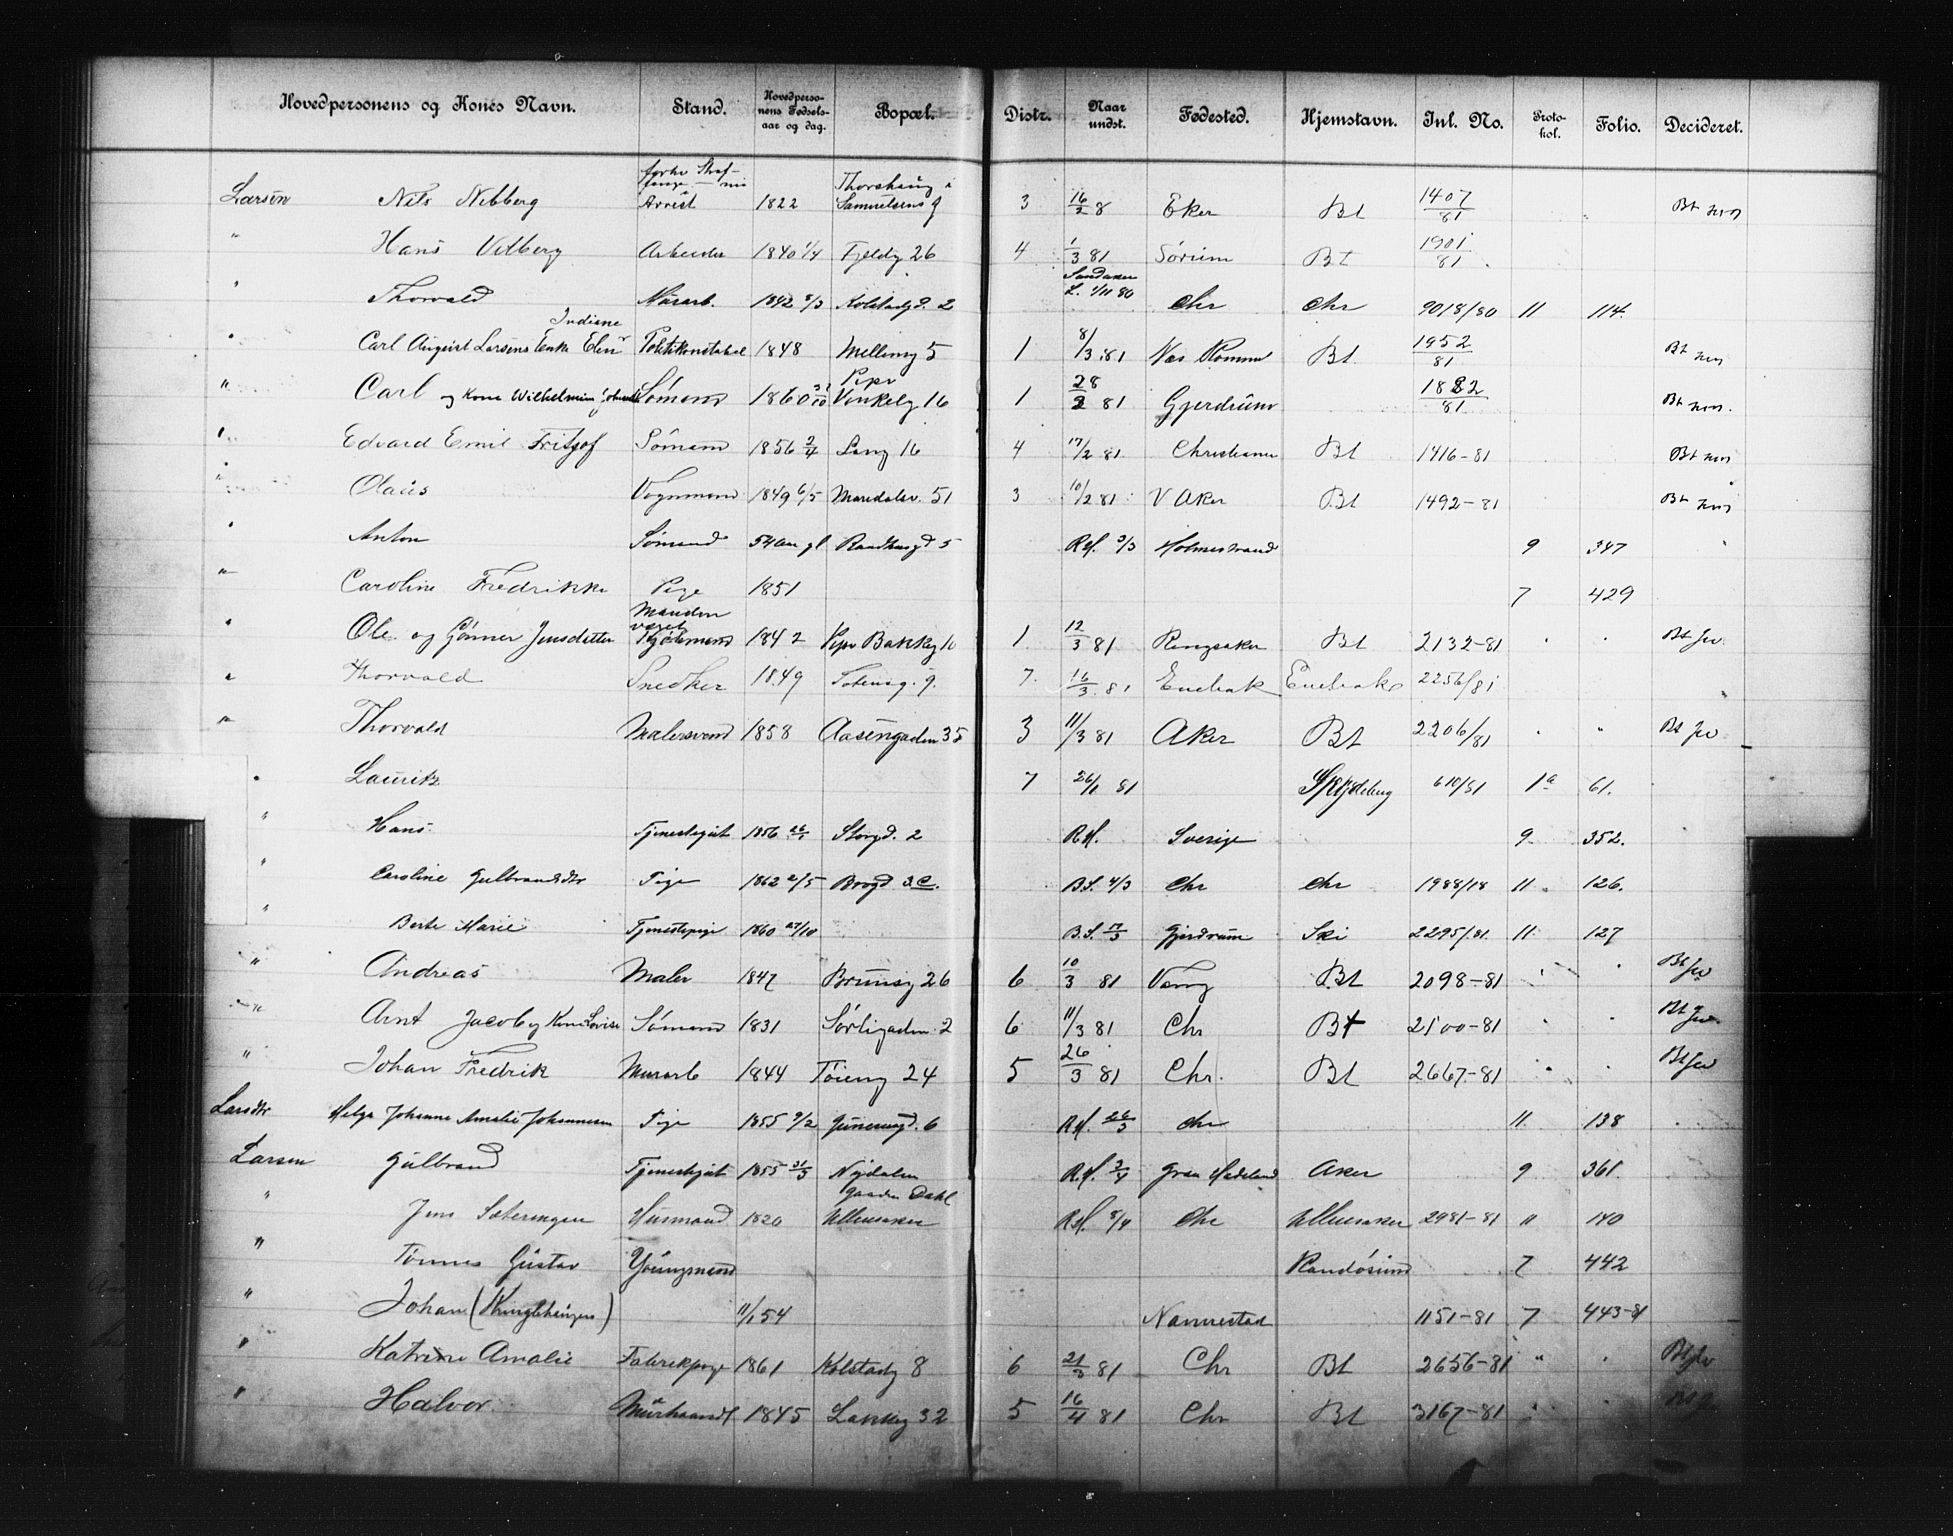 Hovedpersonens og Kones Navn. Stand. Hovedpersonens Fødselsaar og dag. Bopæl. Distr. Naar undst. Fødested. Hjemstavn. Inl. No. Protokol. Folio. Decideret.
Larsen Nils Nibberg Arrest 1822 Samuelsens g 3 16/2 8 Eker Bt 1407/81 Bt
" Hans Vilberg Arbeider 1840 1/4 Fjeldg 26 4 1/3 81 Sørum Bt 1901/81
" Thorvald Murarb. 1842 Kolstadgd. 2 L. 1/11 80 Chr Chr 9018/80 11 114.
" Carl August Larsens Enke Elen Politikonstabel 1848 Mellemg 5 1 8/3 81 Nes Bt. 1952/81 Bt
" Carl og Kone Wilhelmine Sømand 1860 Pipr Vinkelg 16 1 28/2 81 Gjerdrum 1882/81 Bt
" Edvard Emil Fritjof Sømand 1856 2/4 Lang 16 4 17/2 81 Christiania Bt 1416-81 Bt
" Olaus Vognmand 1849 6/5 Maridalsv. 51 3 10/2 81 V Aker Bt 1492-81 Bt
" Anton Sømand 54 aar gl Raadhusgd 5 Rsf. 3/3 Holmestrand 9 347
" Caroline Fredrikke Pige 1851 7 429
" Ole og Gunner Jensdatter 1842 Pipr Bakkeg 10 1. 12/3 81 Ringsaker Bt 2132-81 " " Bt
" Thorvald Snedker 1849 Totensg. 9. 7. 16/3 81 Enebak Enebak 2256/81
" Thorvald Malersvend 1858 Aasengaden 35 3 11/3 81 Aker Bt 2206/81 " " Bt
" Lauritz 7 26/1 81 610/81 1a 61.
" Hans Tjenestegut 1856 Storgd. 2 Rsf. Sverige 9 352.
" Caroline Gulbrandsdtr Pige 1862 2/5 Brogd 3 C. B.S. 4/3 Chr Chr 1988/18 11 126.
" Berte Marie Tjenestepige 1860 27/10 B.S. 17/3 Gjerdrum Ski 2295/81 11 127
" Andreas Maler 1847 Brunsg 26 6 10/3 81 Vang Bt 2098-81 " " Bt
" Arnt Jacob og Kone Lovise Sømand 1831 Sørligaden 2 6 11/3 81 Chr Bt 2100-81 " " Bt
" Johan Fredrik Murarb 1844 Tøieng 24 5 26/3 81 Chr. Bt 2667-81 " " Bt
Larsdtr Helga Johanne Amalie Johannesen Pige 1855 9/2 Grønnegd. 6 Rsf. 26/3 Chr 11 138
Larsen Gulbrand Tjenestegut 1855 31/3 Nydalen Rsf. 2/4 Gran Hadeland Aker 9 361.
" Jens Sæteren­gen Husmand 1820 gaarden Dahl Ullensaker Rsf. 8/4 Chr Ullensaker 2981-81 11 140
" Tønnes Gustav Youngsmand Randøsund 7 442
" Johan (Kringlehaugen) 11/1 54 Nannestad 1151-81 7 443-81
" Katrine Amalie Fabrikpige 1861 Kolstadg 8 6 21/3 81 Chr Bt 2656-81 " " Bt
" Halvor Murhaandl 1845 Lakkeg 32 5 16/4 81 Chr Bt 3167-81 " " Bt